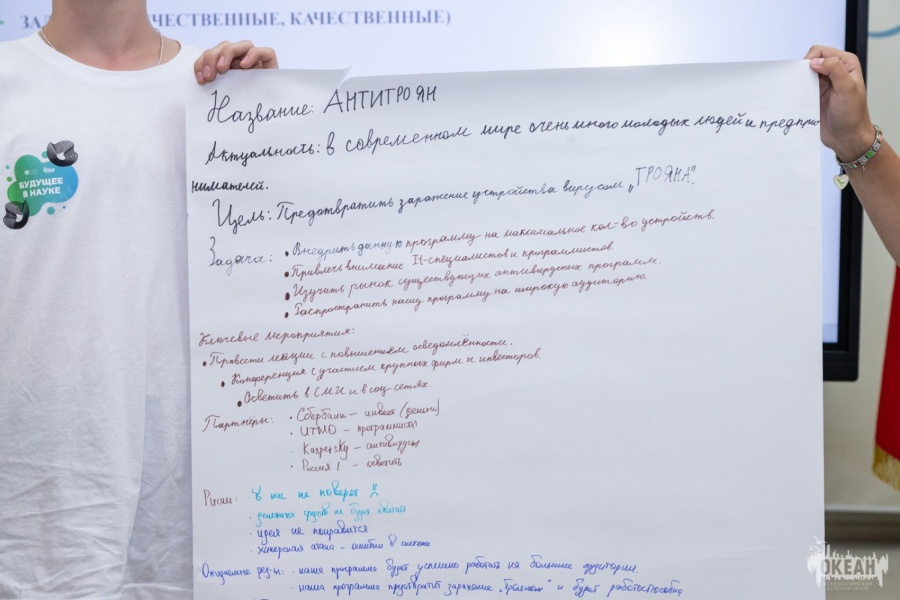 ЗАД ЧЕСТВЕННЫЕ, КАЧЕСТВЕННЫЕ)
БУДУЩЕЕ
В НАУКЕ
Название: АНТИТРОЯН
Актуальность: в современном мире очень много молодых людей и предпри
нимателей.
Цель: Предотвратить заражение устройства вирусом „ТРОЯНА".
Задача:
• Внедрить данную программу на максимальное кол-во устройств.
• Привлечь внимание IT-специалистов и программистов.
• Изучить рынок существующих антивирусных программ.
• Распространить нашу программу на широкую аудиторию.
Ключевые мероприятия:
• Провести лекции с повышением осведомлённости.
• Конференция с участием крупных фирм и инвесторов.
• Осветить в СМИ и в соц. сетях
Партнёры: • Сбербанк – (деньги)
• ИТМО – программисты
• Kaspersky – антивирусы
• Россия 1 – осветить
Риски: • в нас не поверят
• денежных средств не будет хватать
• идея не понравится
• хакерская атака – ошибки в системе
Ожидаемые резы: • наша программа будет успешно работать на большие аудитории.
• наша программа предотвратит заражение „Трояном" и будет работоспособна
ОКЕАН
ВСЕРОССИЙСКИЙ
ДЕТСКИЙ ЦЕНТР